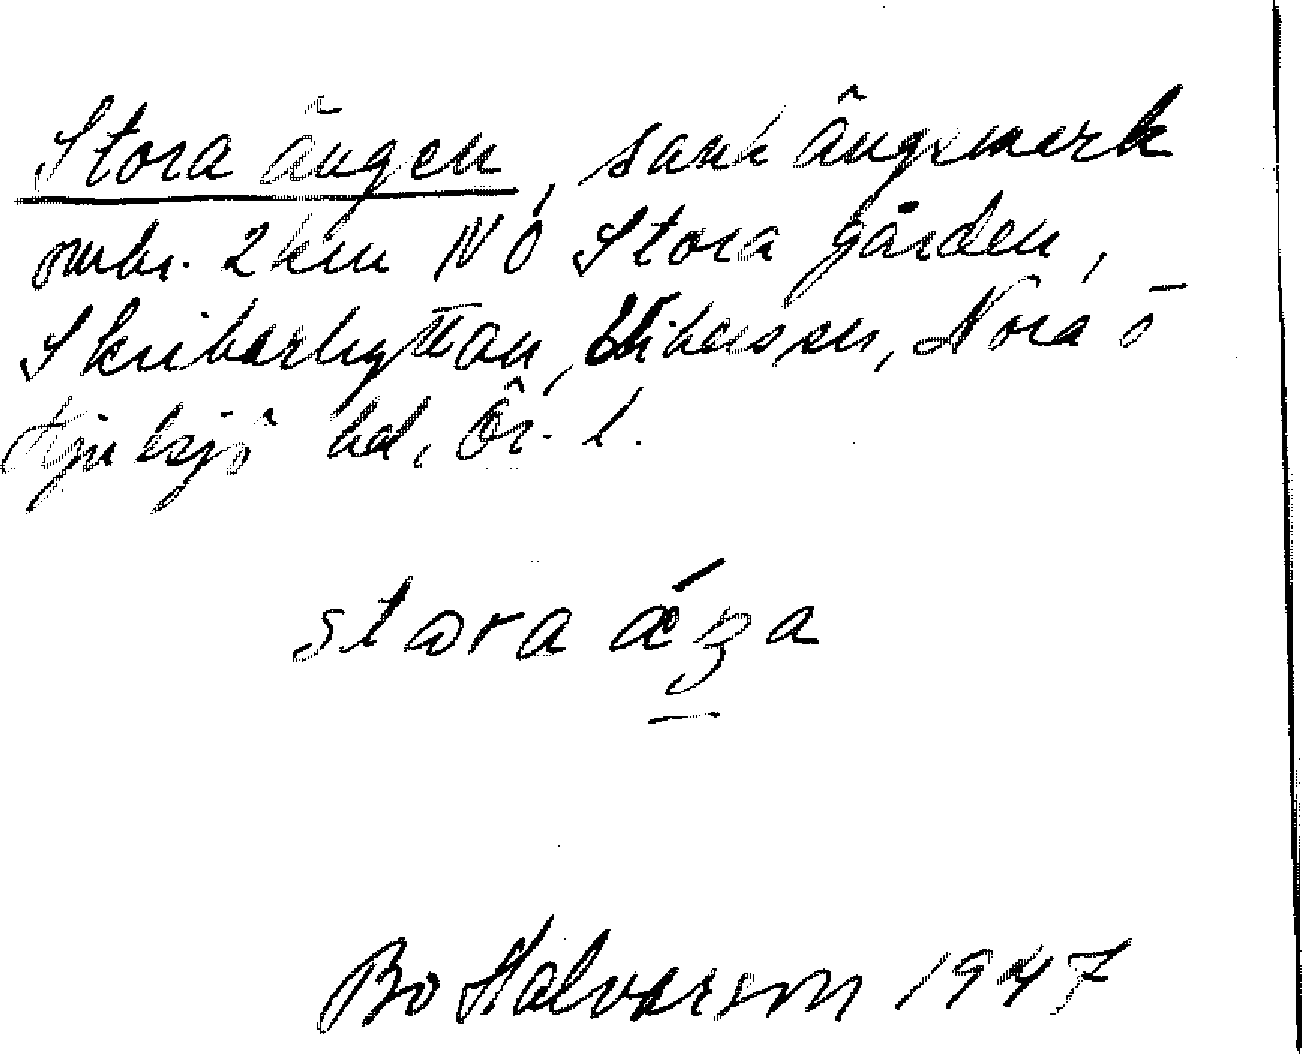 Stora ängen, sank ängsmark
ombr. 2 km NO Stora gården,
Skribarhyttan, Nora o
Hjulsjö bd, Ör. l.
stora
Bo Halvarson 1947